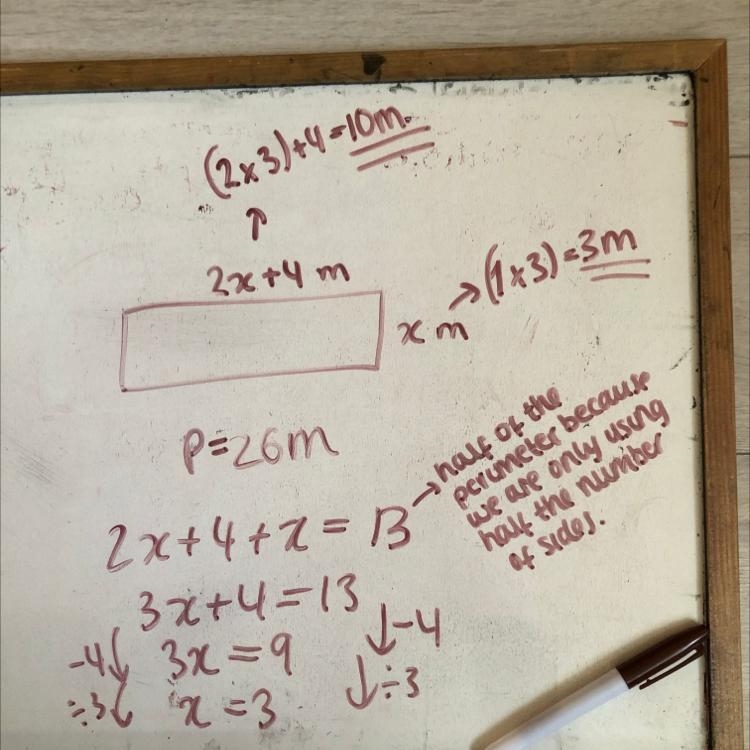 (2x3)+4=10m
↑
2x+4 m
x m → (1x3)=3m
P=26m
2x+4+x=13 → half of the
perimeter because
we are only using
half the number
of sides.
3x+4=13
-4↓ 3x=9 ↓-4
÷3↓ x=3 ↓÷3